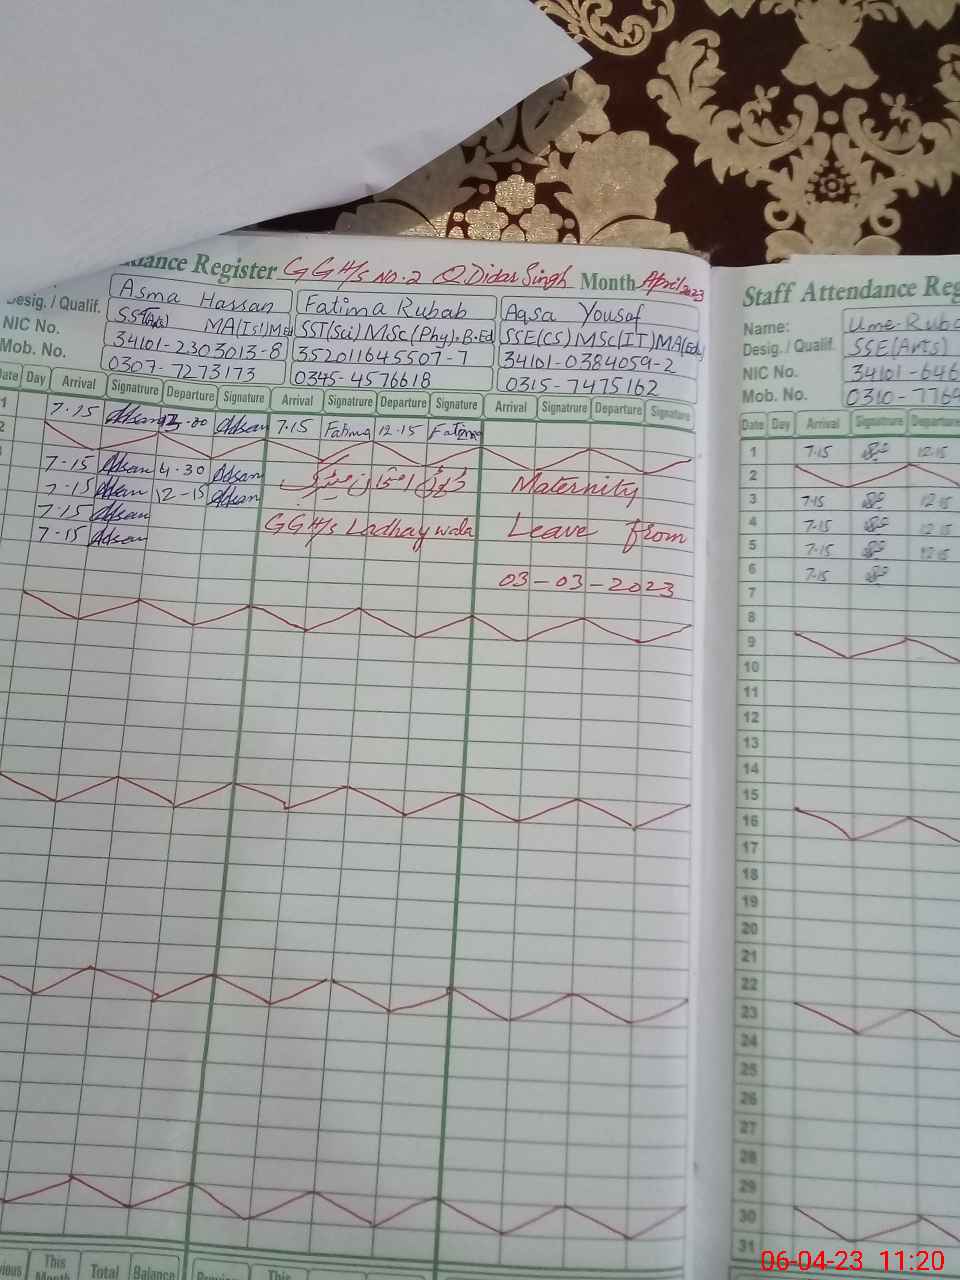 dance Register GGH/S No.2 Q. Didar Singh Month April 2023
Desig. / Qualif.
NIC No.
Mob. No.
Asma Hassan
MA(Isl)M.Ed
34101-2303013-8
0307-7273173
Fatima Rubab
SST(Sci) MSc(Phy).B.Ed
352011645507-7
0345-4576618
Aqsa Yousaf
SSE(CS)MSc(IT)MA(Edu)
34101-0384059-2
0315-7475162
Date Day Arrival Signatrure Departure Signature Arrival Signatrure Departure Signature Arrival Signatrure Departure Signature
1 7.15 7.15 Fatima 12.15 Fatima
2
7-15 4.30
7-15 12-15
7-15
7-15
میٹرک
GGH/S Ladhay wala
Maternity
Leave from
03-03-2023
This
Total Balance
This
Staff Attendance Reg
Name: Ume Ruba
Desig. / Qualif. SSE(Arts)
NIC No. 34101-646
Mob. No. 0310-7769
Date Day Arrival Signatrure Departure
1 7.15 12.15
2
3 7.15 12.15
4 7.15 12.15
5 7.15 12.15
6 7.15
7
8
9
10
11
12
13
14
15
16
17
18
19
20
21
22
23
24
25
26
27
28
29
30
31
06-04-23 11:20